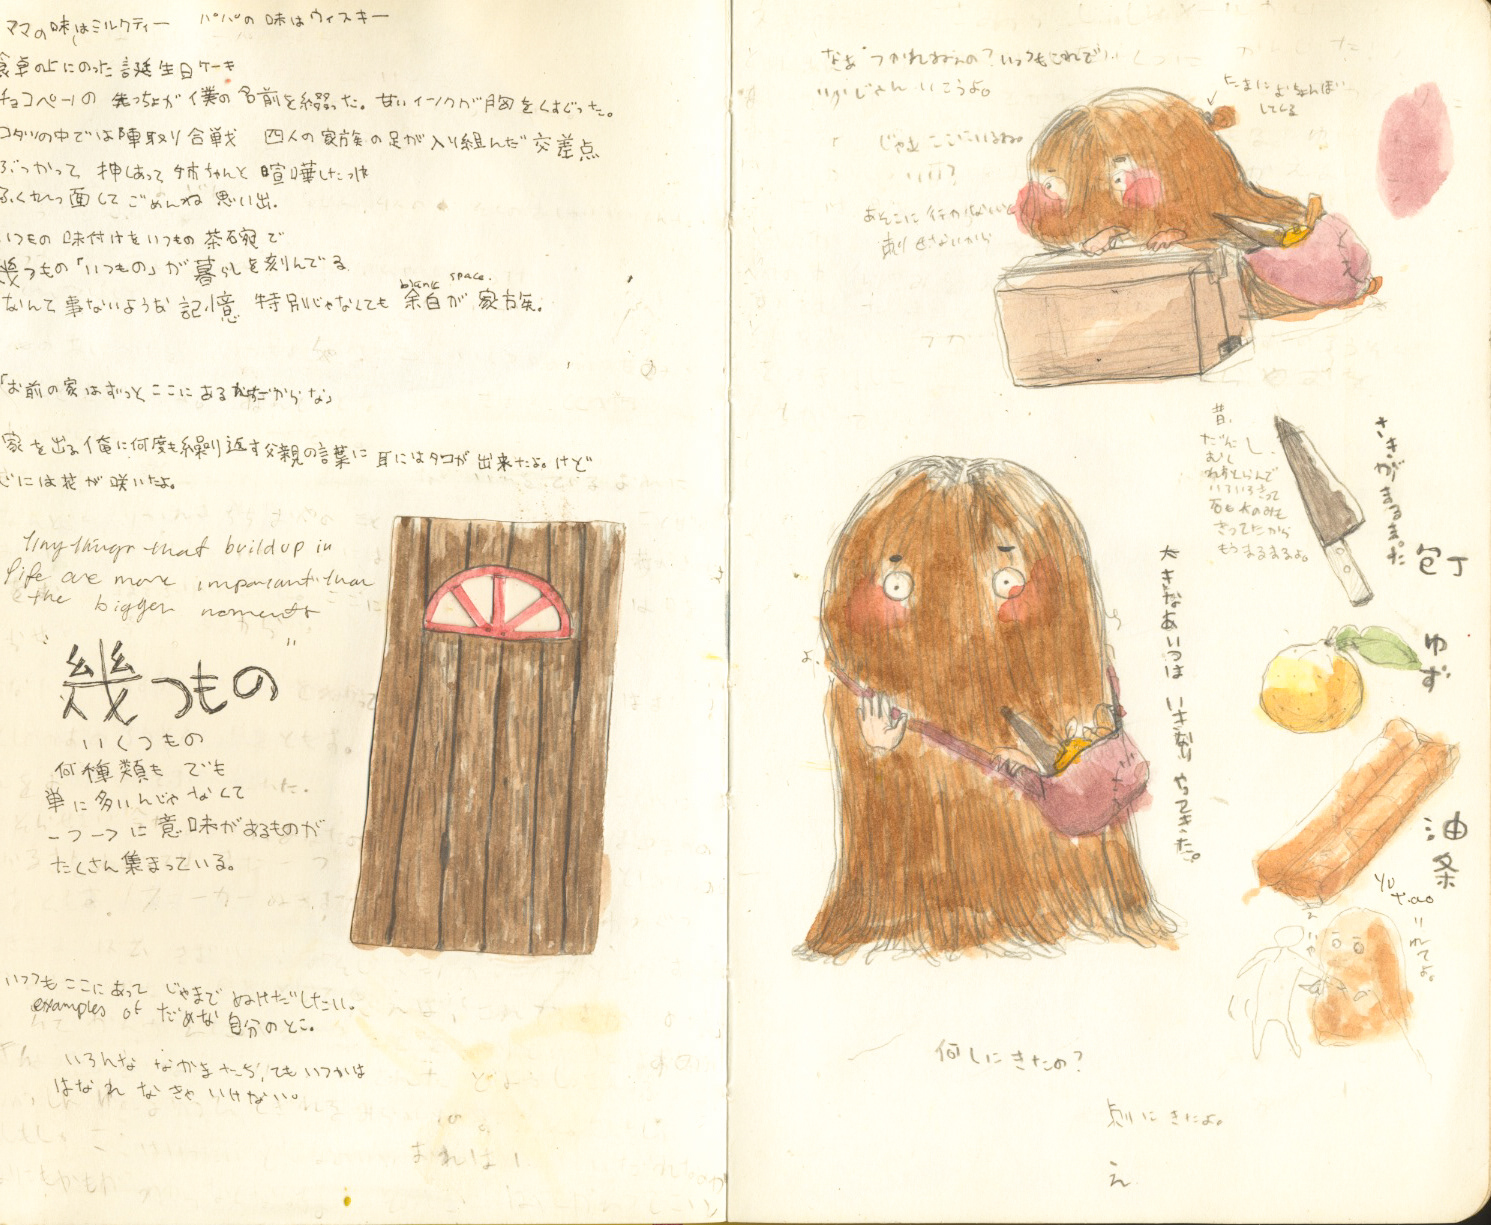 ママの味はミルクティー　パパの味はウィスキー
食卓の上にのった誕生日ケーキ
チョコペールの先っちょが僕の名前を綴った。甘いインクが胸をくすぐった。
コタツの中では陣取り合戦　四人の家族の足が入り組んだ交差点
ぶつかって押しあって姉ちゃんと喧嘩したっけ
ふくれっ面してごめんね思い出。
いつもの味付けをいつもの茶碗で
幾つもの「いつもの」が暮らしを刻んでる
なんて事ないような記憶　特別じゃなくても余白が家族。
blank space.
「お前の家はずっとここにあるからな」
家を出る俺に何度も繰り返す父親の言葉に耳にはタコが出来たよ。けど
心には花が咲いたよ。
tiny things that build up in
life are more important than
the bigger moments
幾つもの
いくつもの
何種類も でも
単に多いんじゃなくて
一つ一つに意味があるものが
たくさん集まっている。
いつもここにあって じゃまで ぬけだしたい。
examples of だめな自分のとこ。
いろんな なかまたち、でもいつかは
はなれなきゃいけない。
なあ つかれねえの？いつもこれで
いいじゃん いこうよ。
たまにおちょんぼ
してる
じゃあ ここにいるね。
いい？
あそこに行かないと
刺せないから
昔、
さきがまるまった
包丁
ゆず
油条
yu
tiao
大きなあいつは いきなり やってきた。
いれてよ。
何しにきたの？
刺しにきたよ。
え